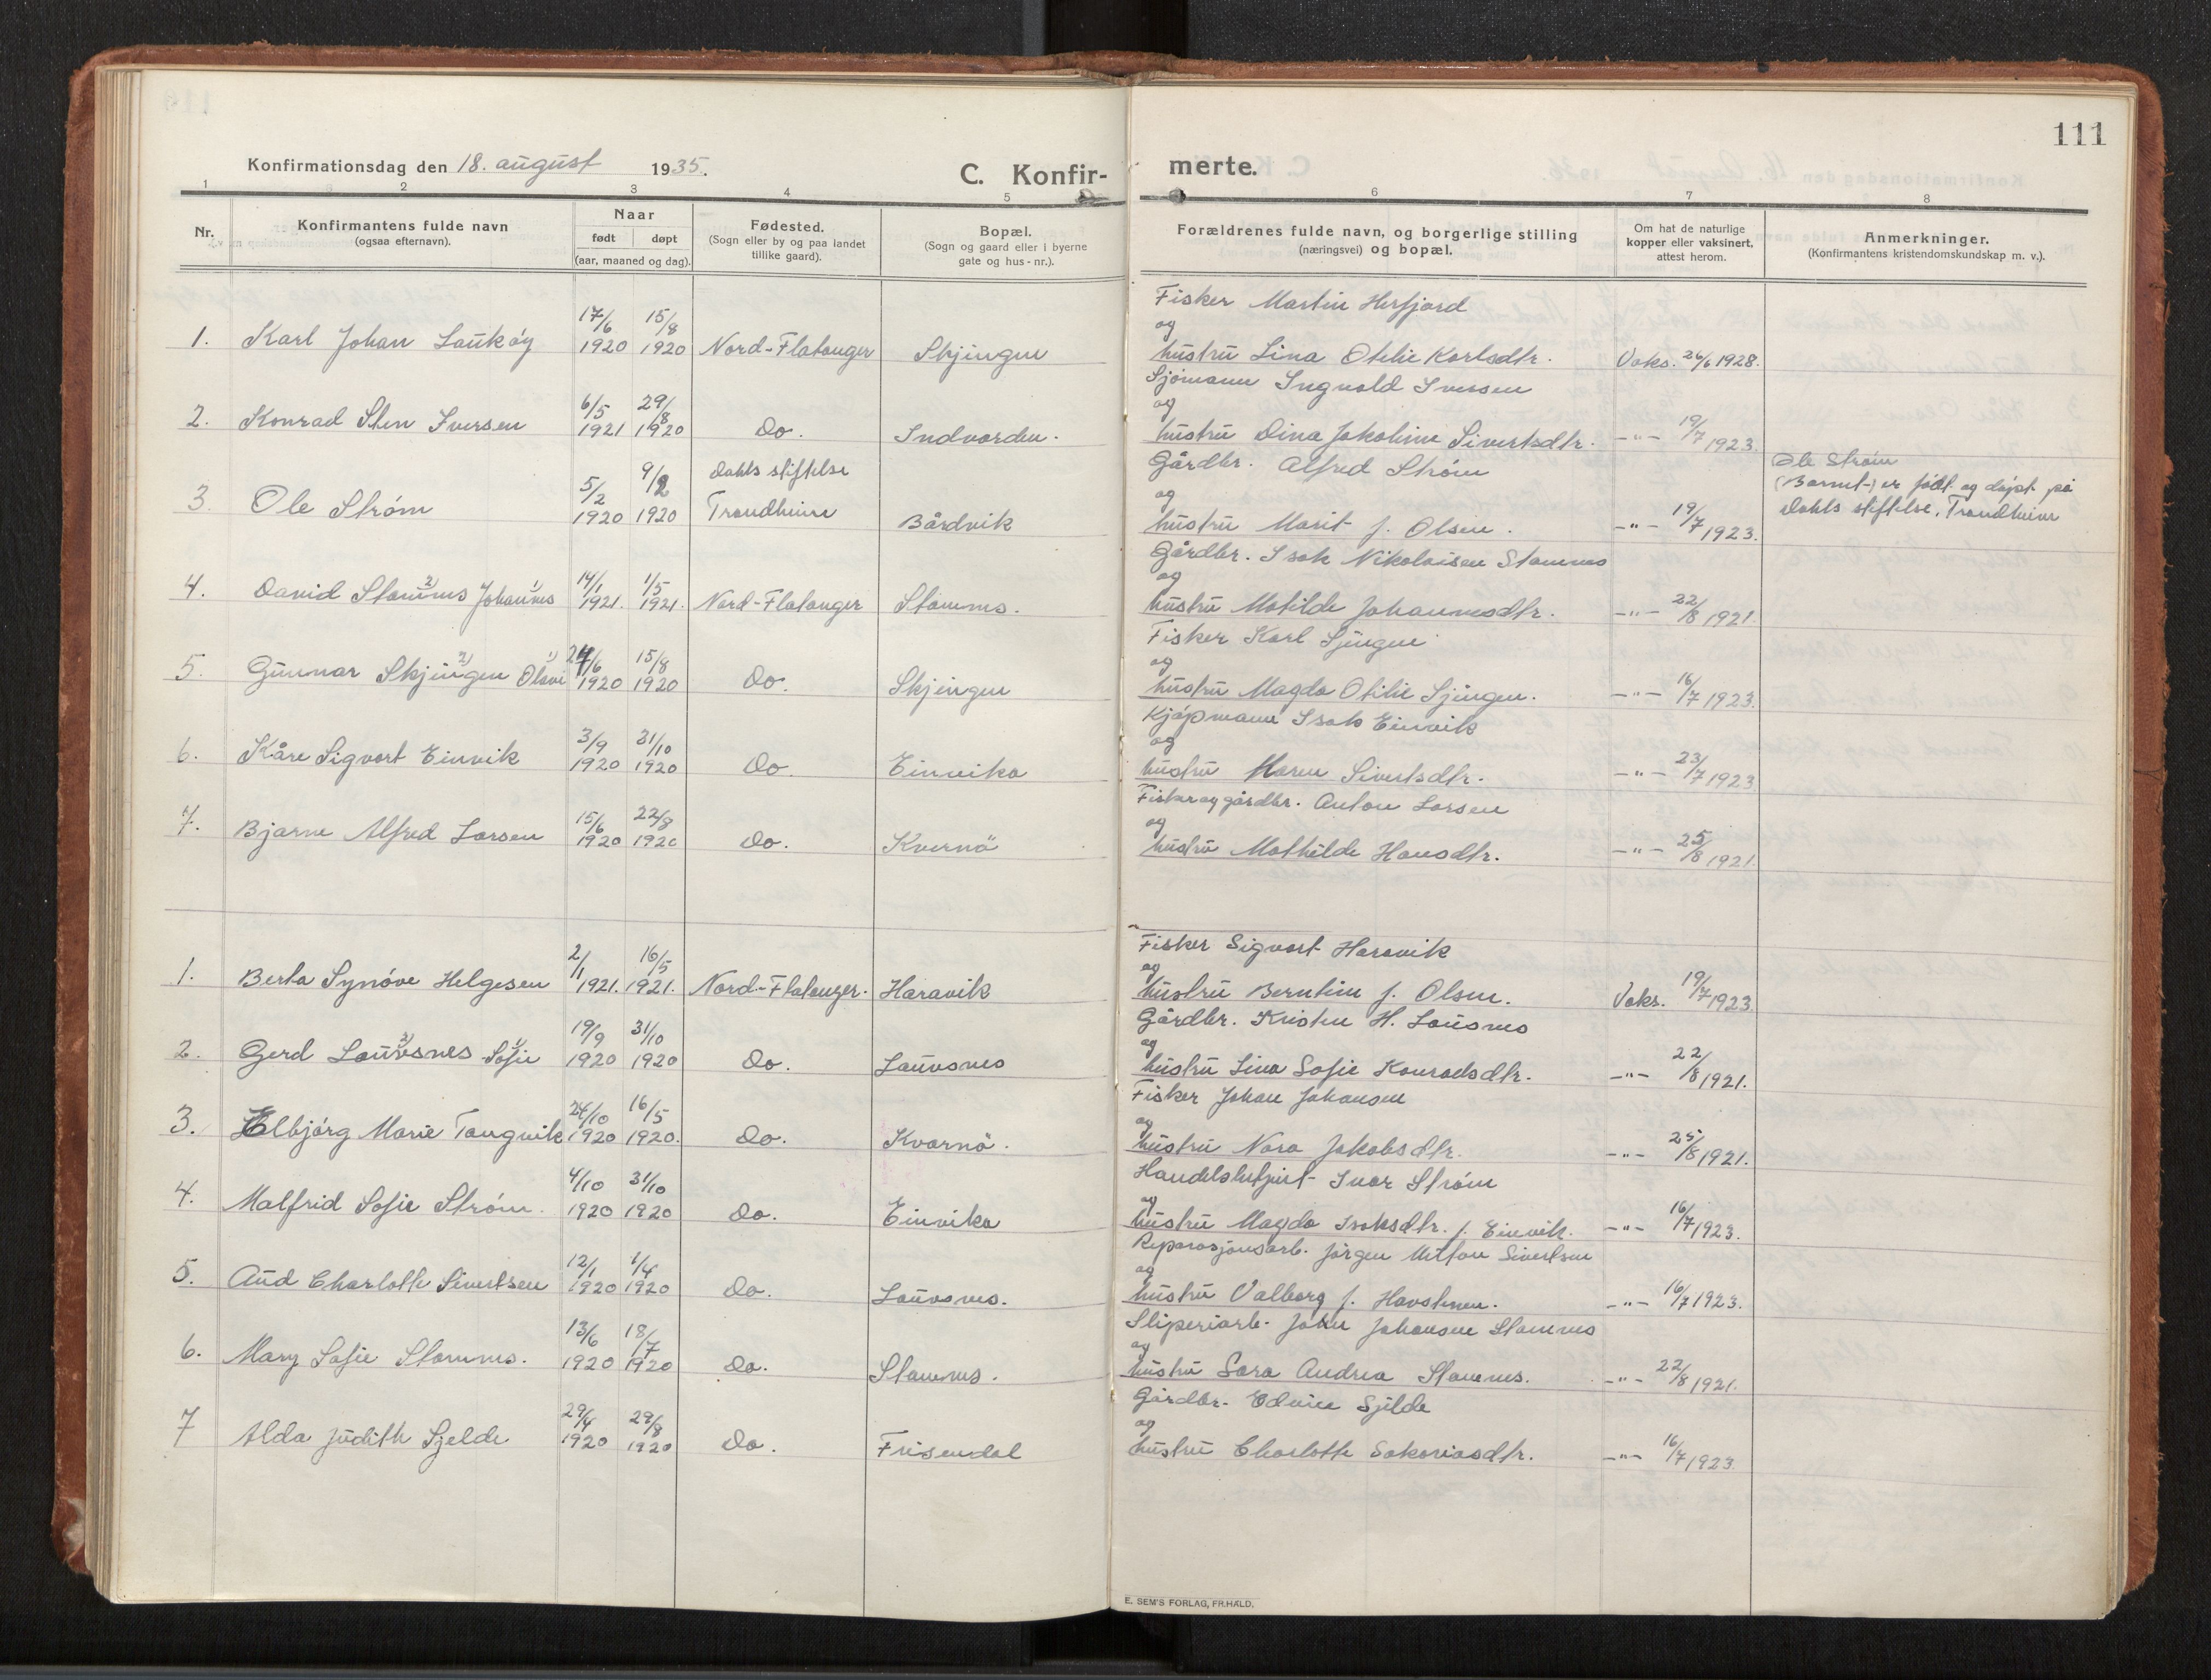 111
Konfirmationsdag den 18. august 1935.
C. Konfir-merte.
1 2 3 4 5 6 7 8
Nr.
Konfirmantens fulde navn
(ogsaa efternavn).
Naar
født døpt
(aar, maaned og dag).
Fødested.
(Sogn eller by og paa landet
tillike gaard).
Bopæl.
(Sogn og gaard eller i byerne
gate og hus-nr.).
Forældrenes fulde navn, og borgerlige stilling
(næringsvei) og bopæl.
Om hat de naturlige
kopper eller vaksinert,
attest herom.
Anmerkninger.
(Konfirmantens kristendomskundskap m. v.).
Fisker Martin Herfjord
og
1. Karl Johan Laukøy 17/6 1920 15/8 1920 Nord-Flatanger Skjingen hustru Lina Otilie Karlsdtr. Vaks. 26/6 1928.
Sjømann Ingvald Iversen
og
2. Konrad Sten Iversen 6/5 1921 29/8 1920 Do. Indvorden. hustru Dina Jakobine Sivertsdtr. -"- 19/7 1923.
Gårdbr. Alfred Strøm
og
3. Ole Strøm 5/2 1920 9/2 1920 Dahls stiftelse Trondheim Bårdvik hustru Marit f. Olsen. -"- 19/7 1923.
Ole Strøm
(Barnet-) er født og døpt på
Dahls stiftelse, Trondheim
Gårdbr. Isak Nikolaisen Stamnes
og
4. David Stamnes 2) Johannes 1) 14/1 1921. 1/5 1921. Nord-Flatanger Stamnes. hustru Matilde Johannesdtr. -"- 22/8 1921.
Fisker Karl Sjingen
og
5. Gunnar Skjingen 2) Olavi 1) 24/6 1920 15/8 1920 Do. Skjingen hustru Magda Otilie Sjingen. -"- 16/7 1923.
Kjøpmann Isak Einvik
og
6. Kåre Sigvart Einvik 3/9 1920 31/10 1920 Do. Einvika hustru Maren Sivertsdtr. -"- 23/7 1923
Fisker og gårdbr. Anton Larsen
og
7. Bjarne Alfred Larsen 15/6 1920 22/8 1920 Do. Kvernö hustru Mathilde Hansdtr. -"- 25/8 1921.
Fisker Sigvart Haravik
og
1. Berta Synøve Helgesen 2/1 1921. 16/5 1921. Nord-Flatanger. Haravik hustru Berntine f. Olsen. Vaks. 19/7 1923.
Gårdbr. Kristen H. Lausnes
og
2. Gerd Lauvsnes 2) Sofie 1) 19/9 1920 31/10 1920 Do. Lauvsnes hustru Lina Sofie Konradsdtr. -"- 22/8 1921.
Fisker Johan Johansen
og
3. Elbjørg Marie Tangvik 24/10 1920 16/5 1920. Do. Kvarnö. hustru Nora Jakobsdtr. -"- 25/8 1921.
Handelsbetjent Ivar Strøm
og
4. Malfrid Sofie Strøm. 4/10 1920 31/10 1920 Do. Einvika hustru Magda Isaksdtr. f. Einvik. -"- 16/7 1923.
Reparasjonsarb. Jørgen Sivertsen
og
5. Aud Charlotte Sivertsen 12/1 1920 1/4 1920 Do. Lauvsnes. hustru Valborg f. Havstenen. -"- 16/7 1923.
Sliperiarb. John Johansen Stamnes
og
6. Mary Sofie Stamnes. 13/6 1920 18/7 1920 Do. Stamnes. hustru Sara Andrea Stamnes. -"- 22/8 1921.
Gårdbr. Edvin Sjelde
og
7 Alda Judith Sjelde 29/4 1920 29/8 1920 Do. Frisendal hustru Charlotte Sakariasdtr. -"- 16/7 1923.
E. SEM'S FORLAG, FR.HALD.